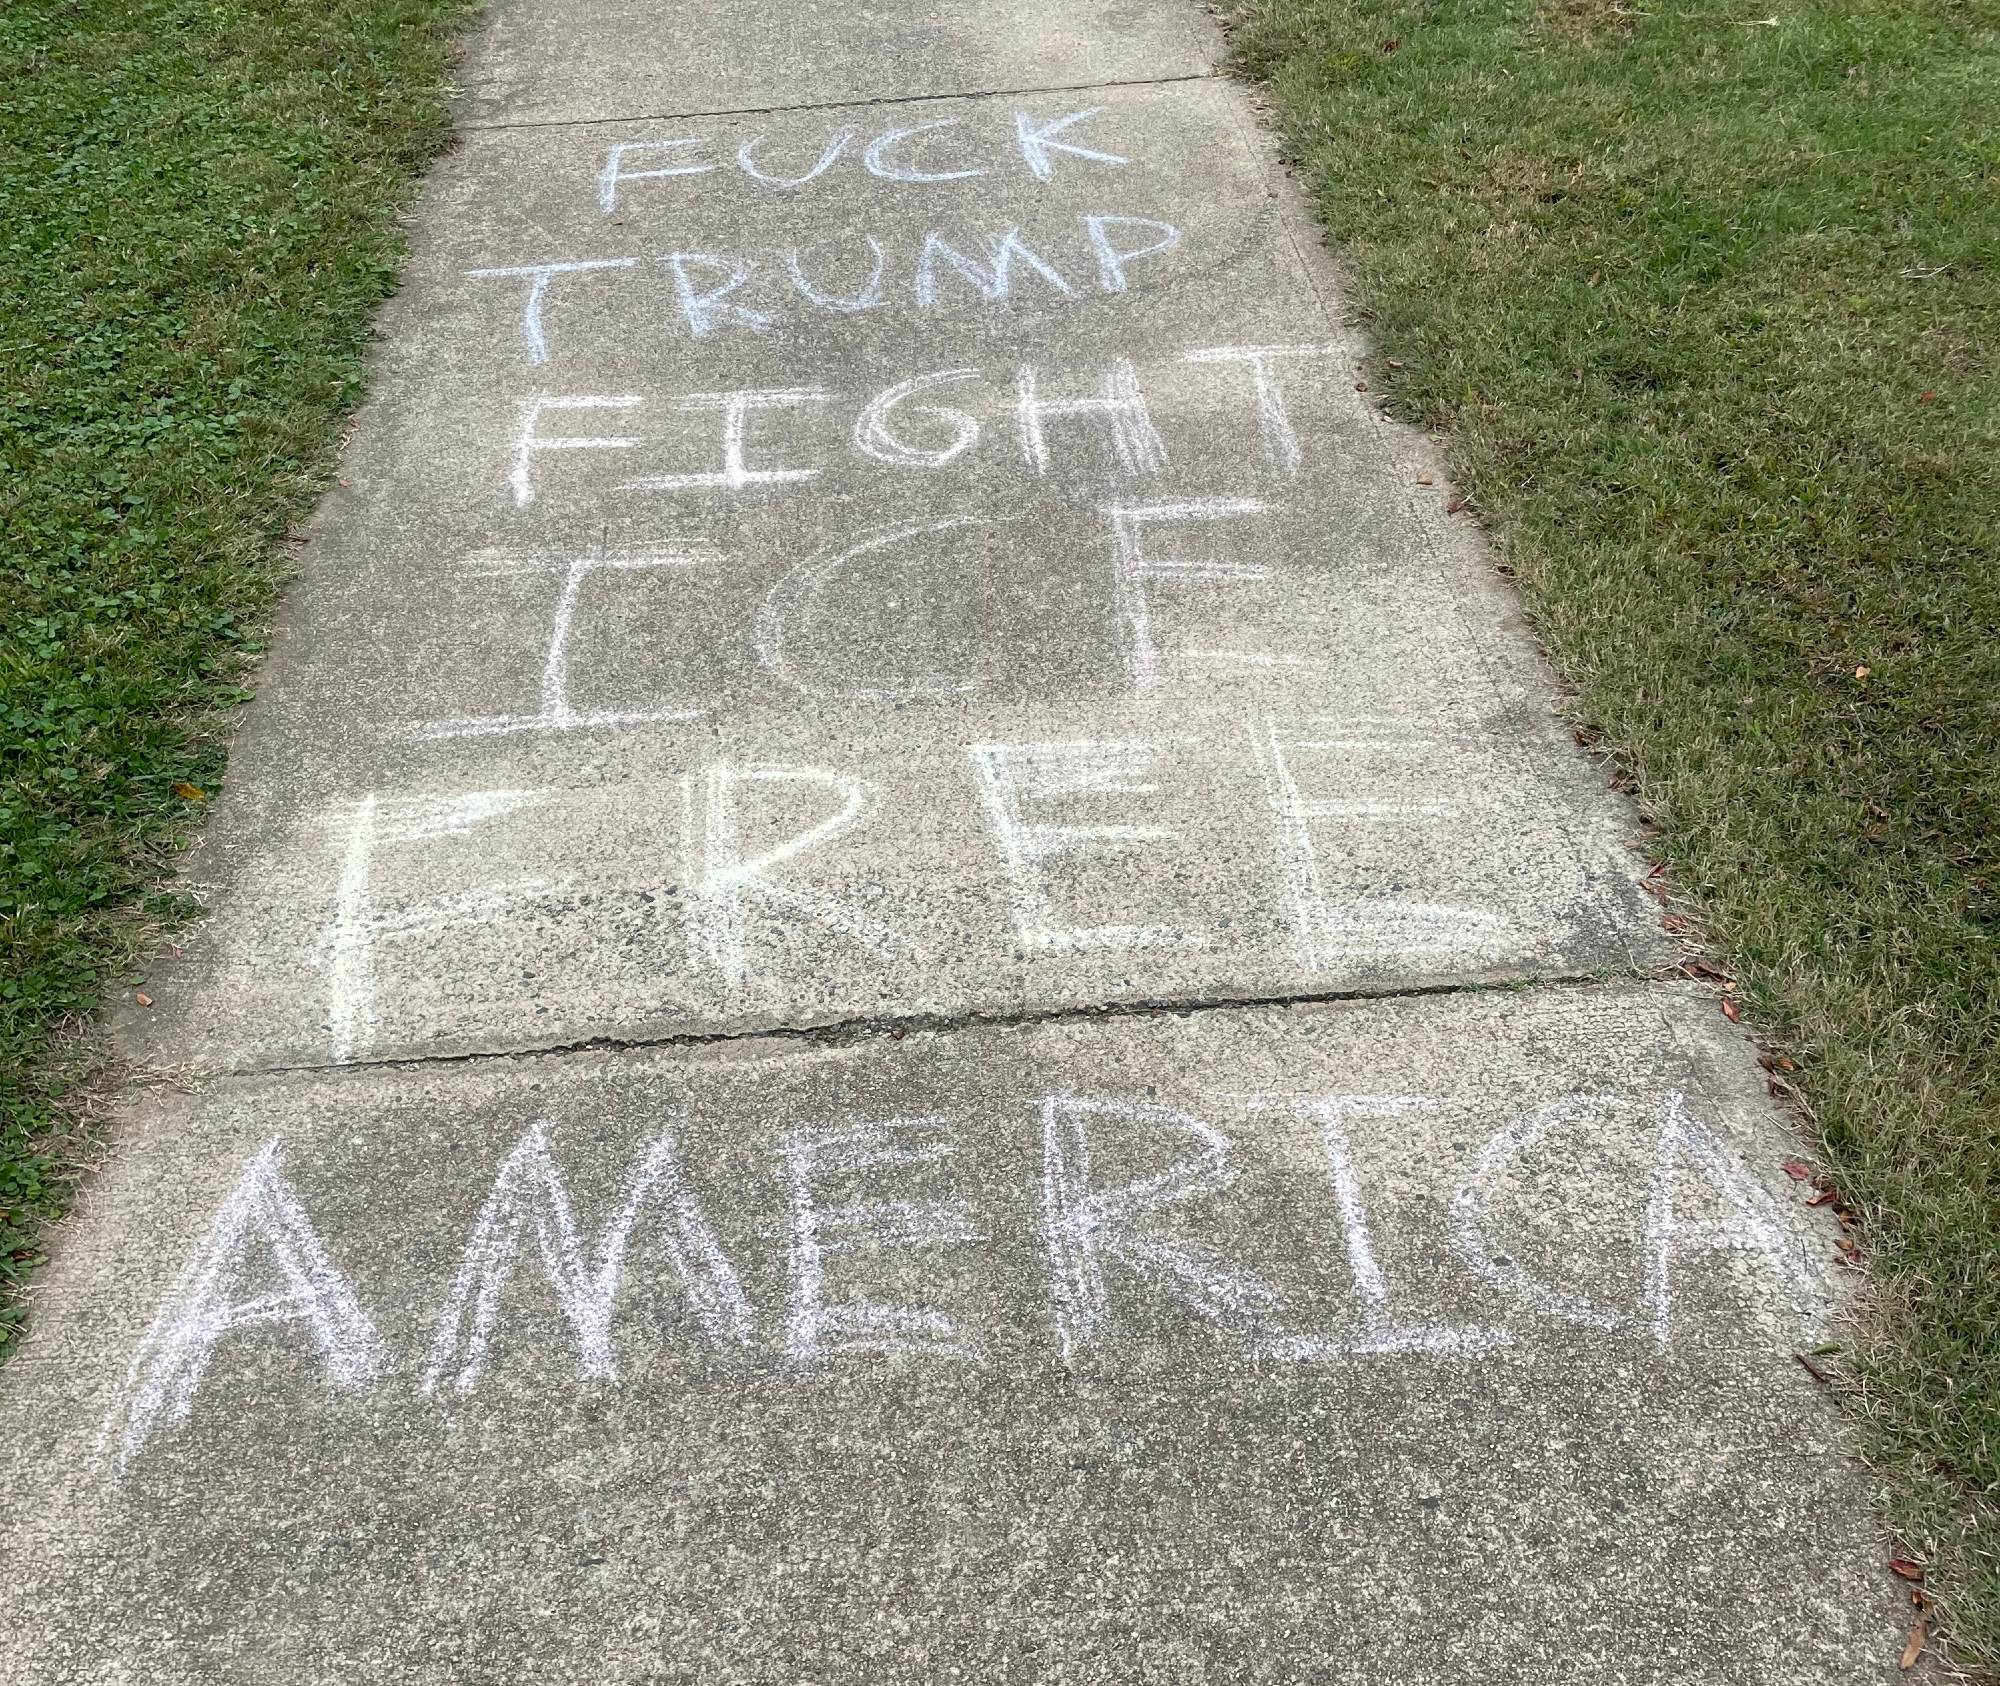 FUCK
TRUMP
FIGHT
ICE
FREE
AMERICA